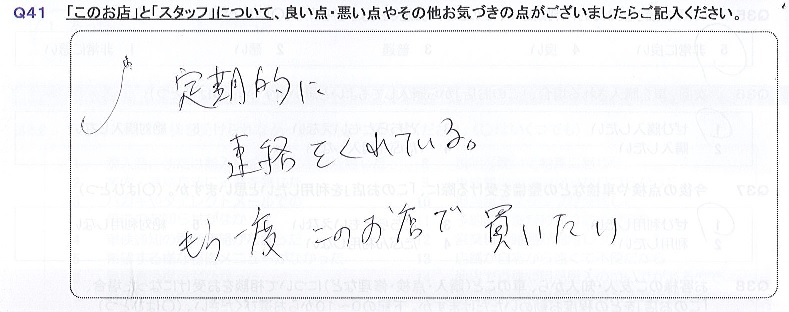 Q41 「このお店」と「スタッフ」について、良い点・悪い点やその他お気づきの点がございましたらご記入ください。
定期的に
連絡をくれている。
もう一度 このお店で 買いたい